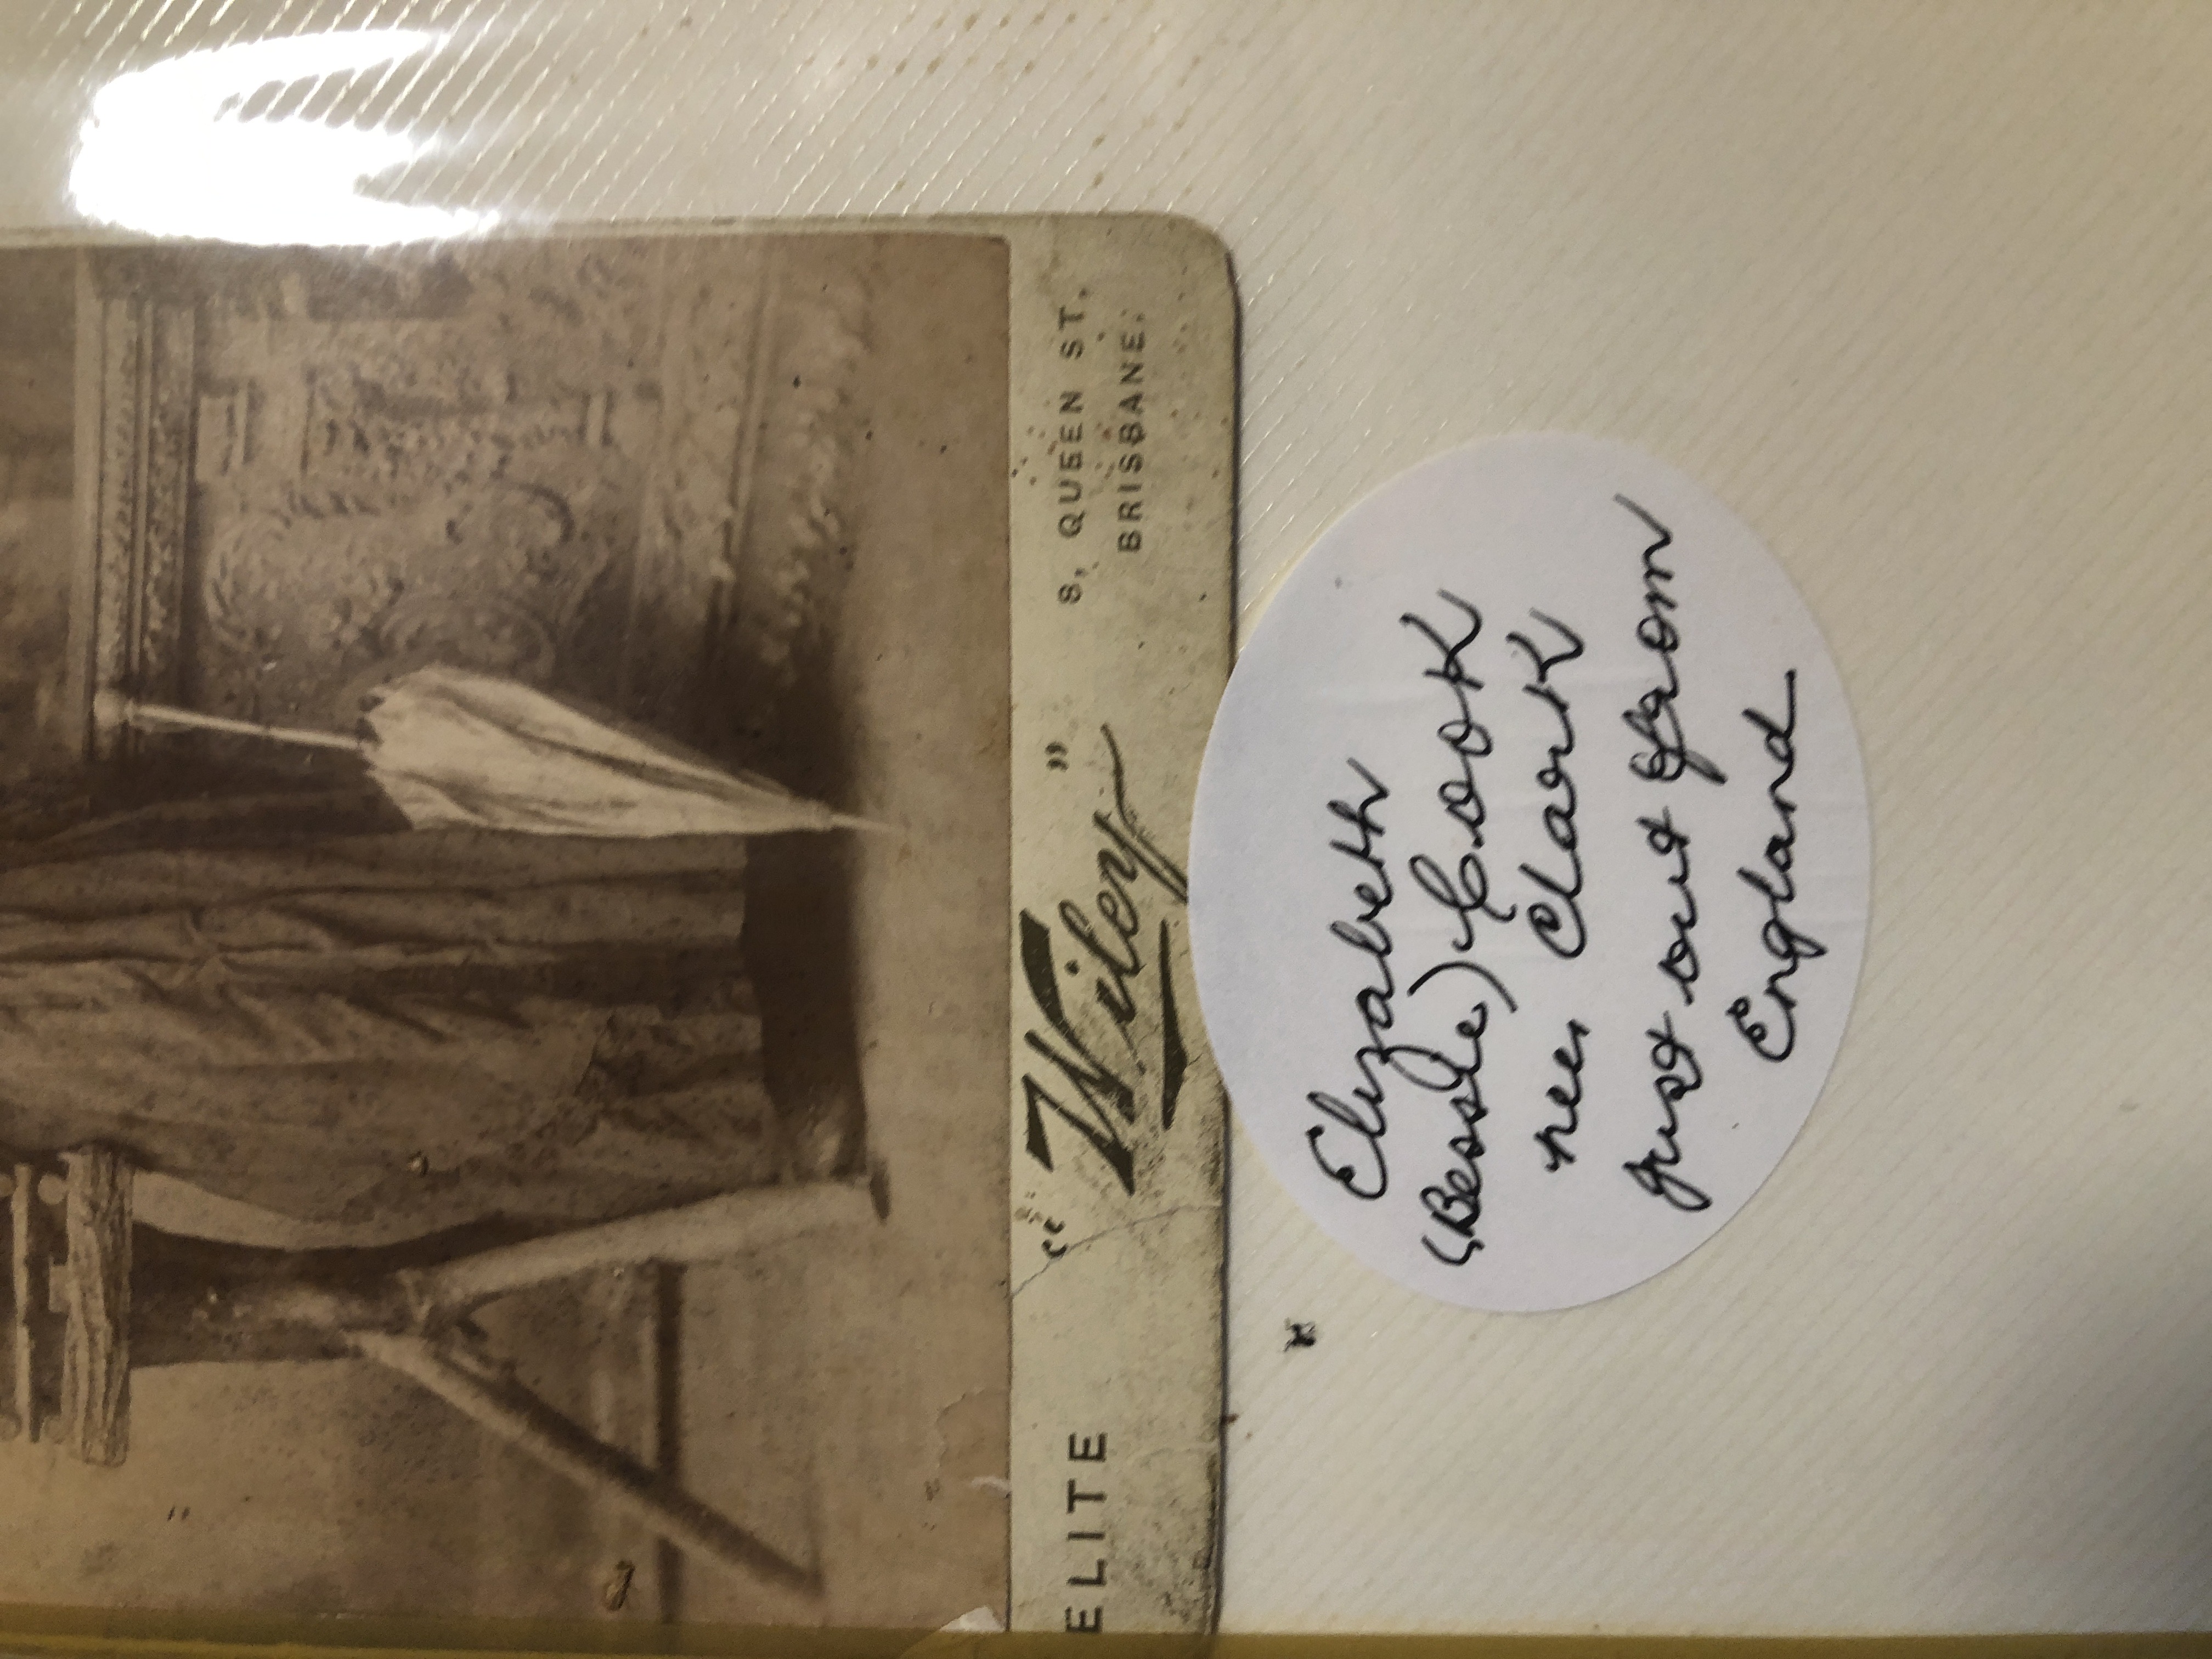 ELITE “Wiley” 8, QUEEN ST.
BRISBANE.
Elizabeth
(Bessie) Cook
nee Clark
just out from
England